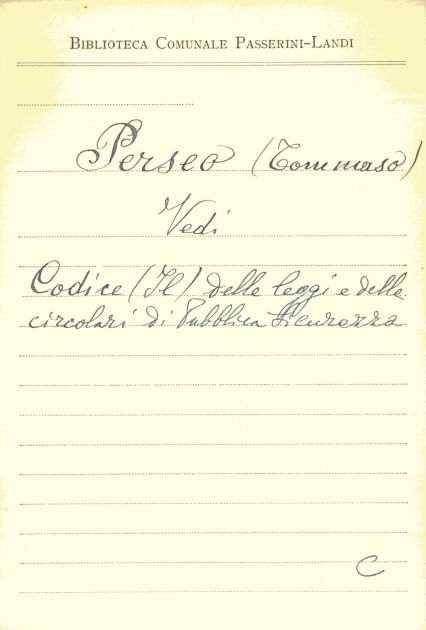 BIBLIOTECA COMUNALE PASSERINI-LANDI
Perseo (Tommaso)
Vedi
Codice (Il) delle leggi e delle
circolari di Pubblica Sicurezza
C